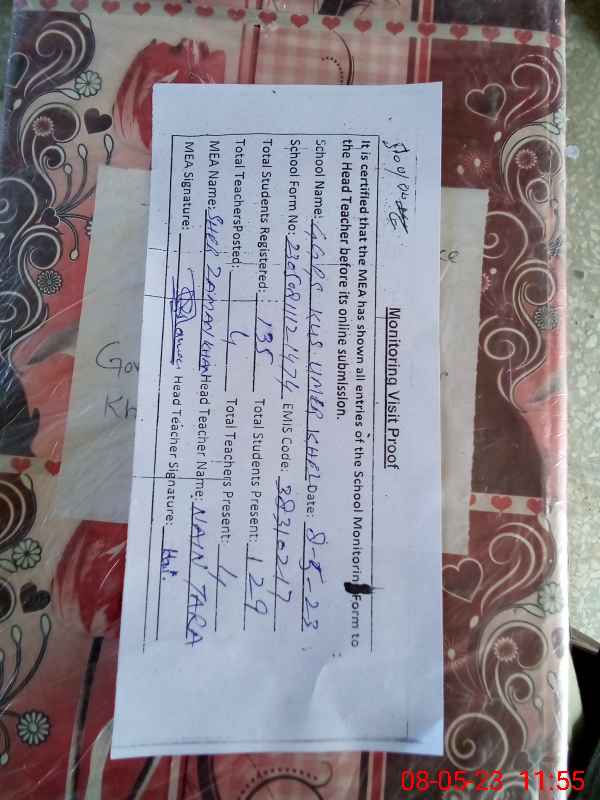 Monitoring Visit Proof
It is certified that the MEA has shown all entries of the School Monitorin Form to
the Head Teacher before its online submission.
School Name: GGPS KHS UMER KHEL Date: 8-5-23
School Form No: 2305081112-1474 EMIS Code: 38310217
Total Students Registered: 135 Total Students Present: 129
Total TeachersPosted: 4 Total Teachers Present: 4
MEA Name: SHER ZAMAN KHAN Head Teacher Name: NAIN TARA
MEA Signature: Head Teacher Signature:
Gov
Kh
08-05-23 11:55